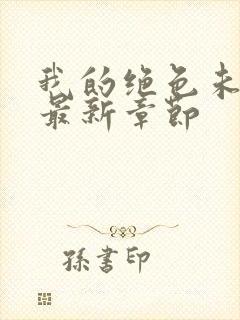 我的绝色未
最新章节
孫書印